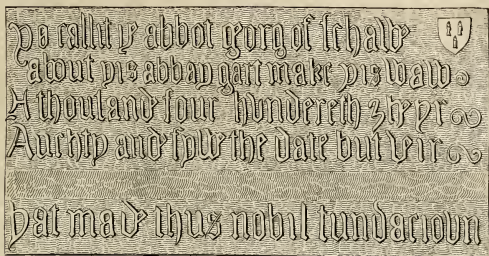 ya callit ye abbot georg of schawe
about yis abbay gart make yis waw
A thousande four hundereth zheyr
Auchty ande fywe the date but veir
yat made thus nobil fundacioun